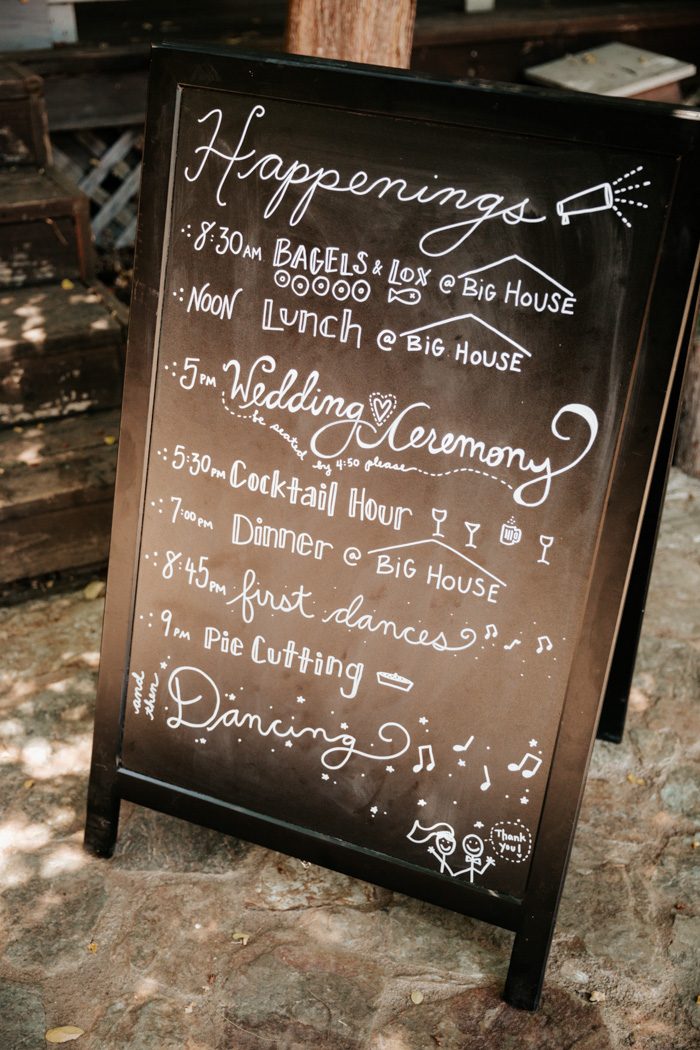 Happenings
8:30AM BAGELS & LOX @ BIG HOUSE
NOON Lunch @ BIG HOUSE
5PM Wedding Ceremony
be seated by 4:50 please
5:30PM Cocktail Hour
7:00PM Dinner @ BIG HOUSE
8:45PM first dances
9PM Pie Cutting
and then Dancing
Thank you!